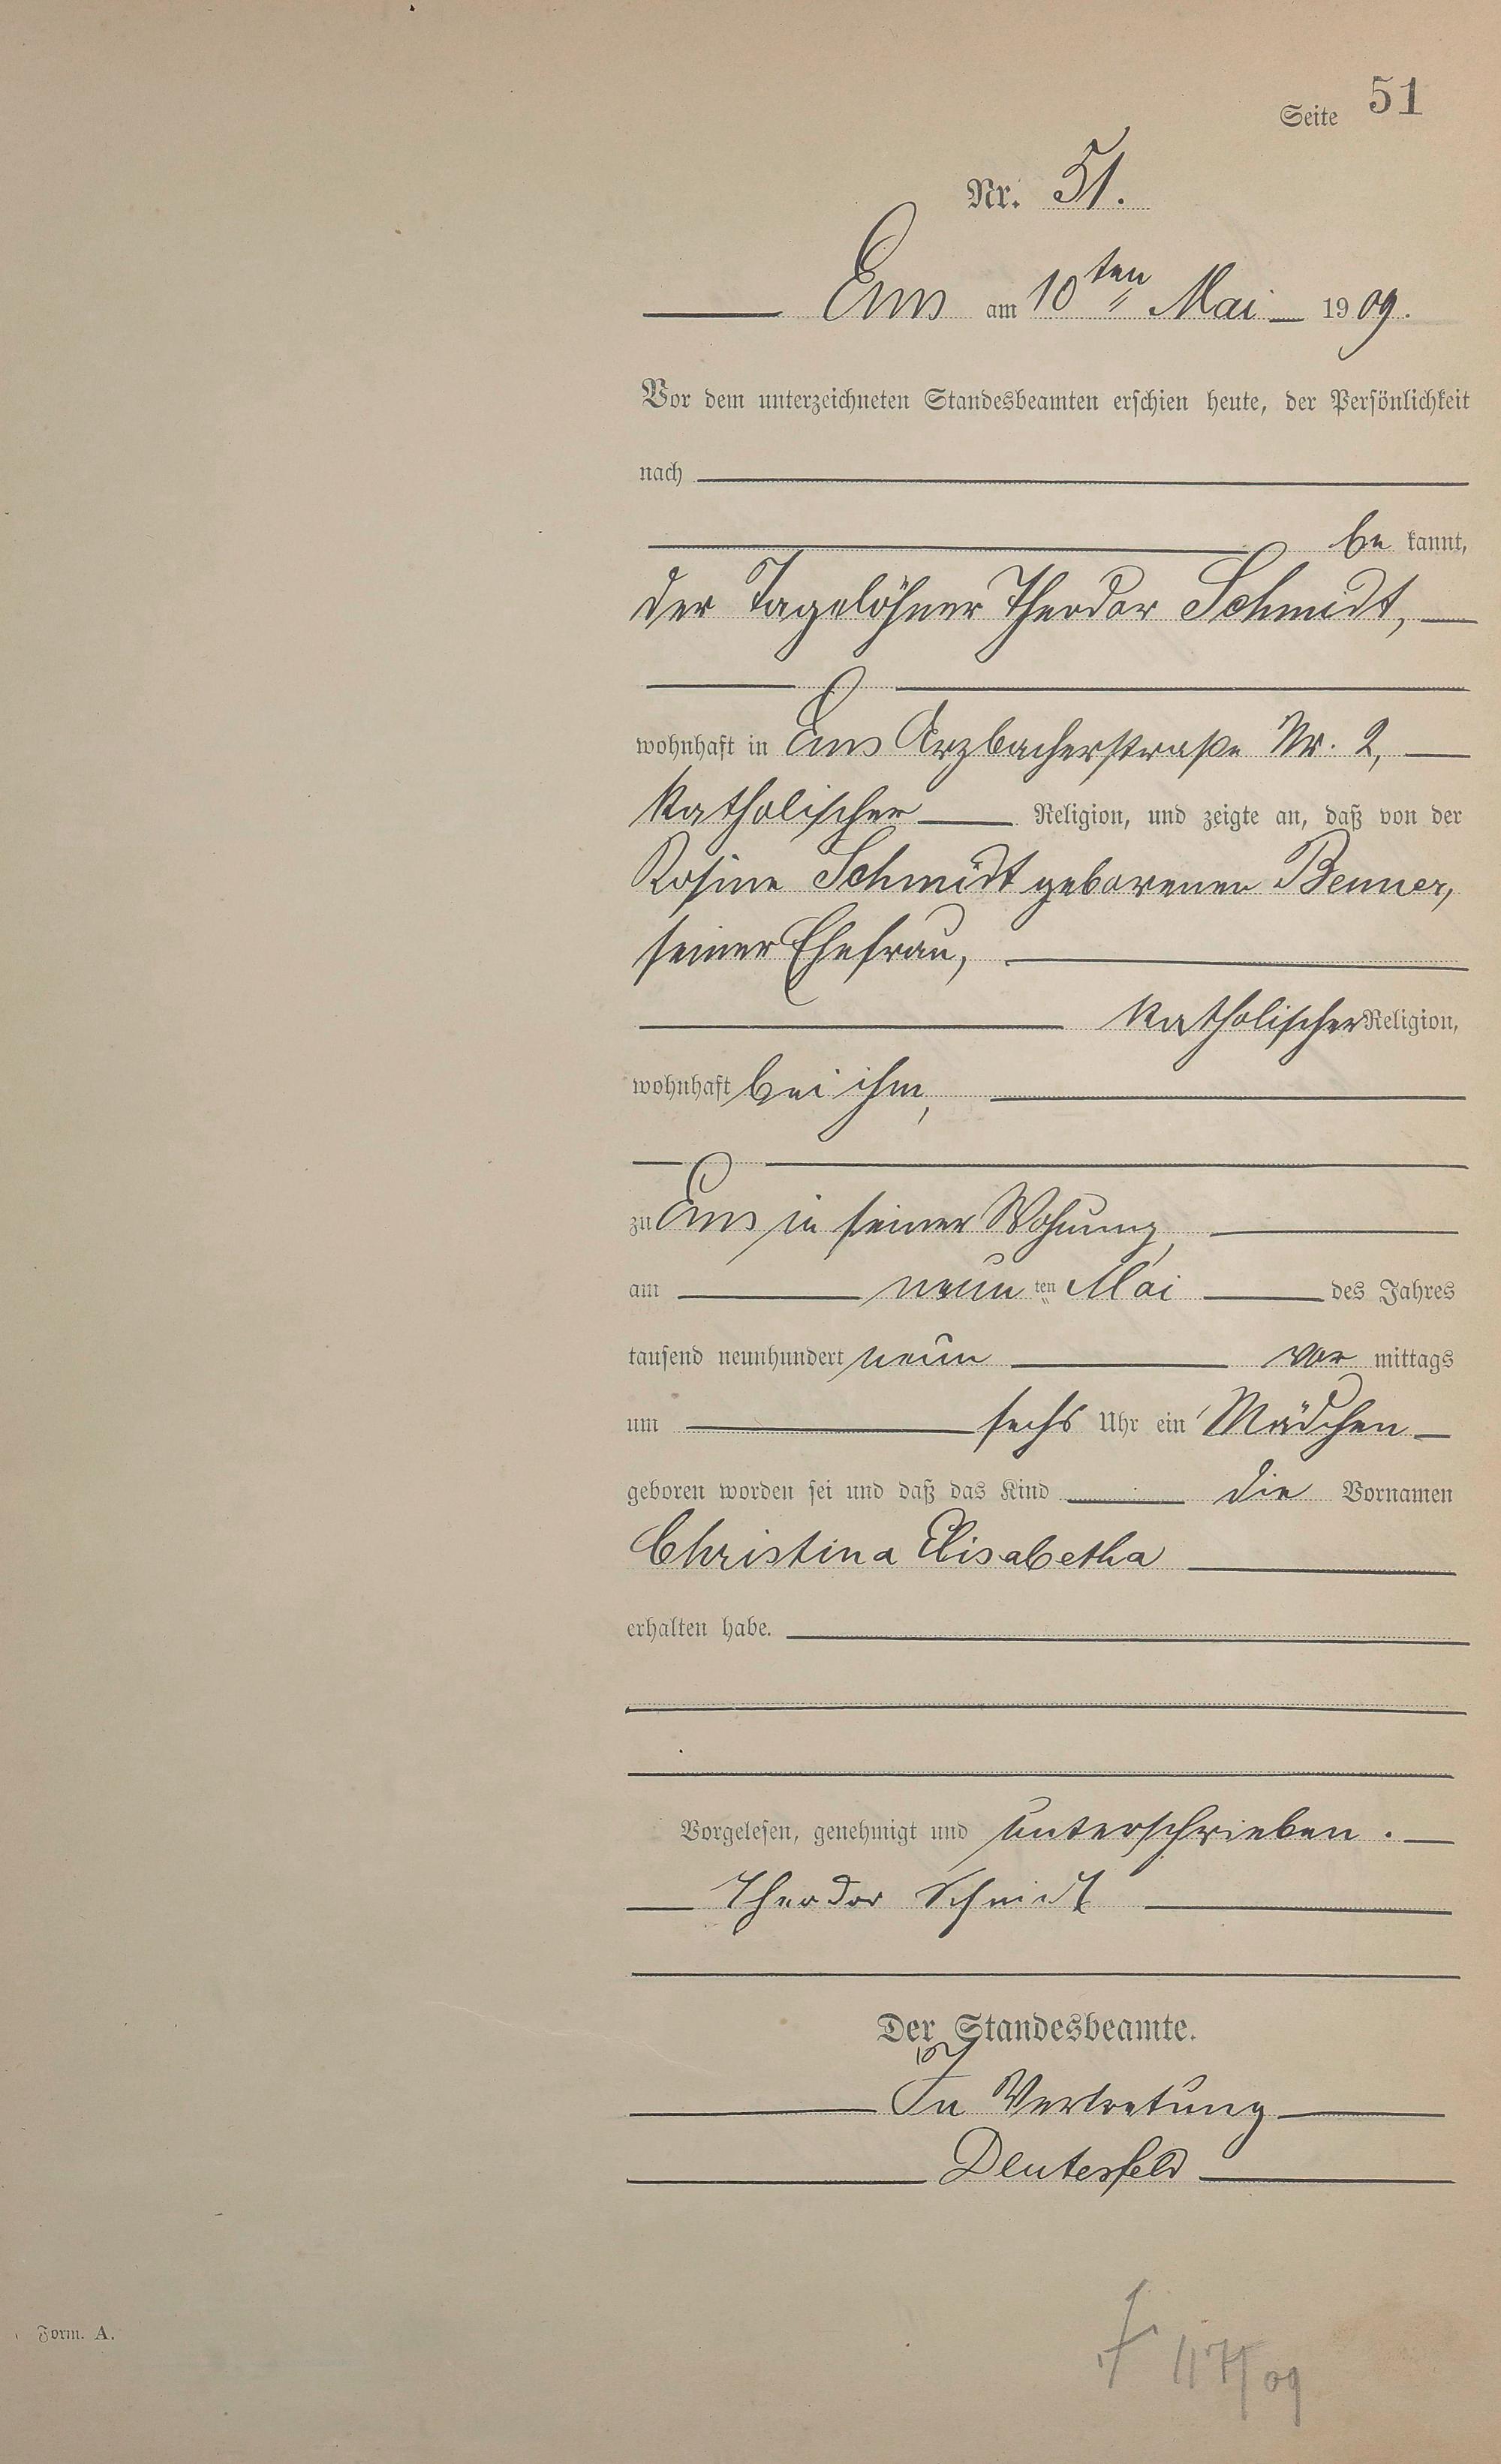 Seite 51
Nr. 51.
Ems am 10ten Mai 1909.
Vor dem unterzeichneten Standesbeamten erschien heute, der Persönlichkeit
nach
be kannt,
der Tagelöhner Theodor Schmidt,
wohnhaft in Ems Arzbacherstraße Nr. 2,
katholischer Religion, und zeigte an, daß von der
Rosine Schmidt geborenen Benner,
seiner Ehefrau,
katholischer Religion,
wohnhaft bei ihm,
zu Ems in seiner Wohnung,
am neun ten Mai des Jahres
tausend neunhundert neun vor mittags
um sechs Uhr ein Mädchen
geboren worden sei und daß das Kind die Vornamen
Christina Elisabetha
erhalten habe.
Vorgelesen, genehmigt und unterschrieben.
Theodor Schmidt
Der Standesbeamte.
In Vertretung
Form. A.